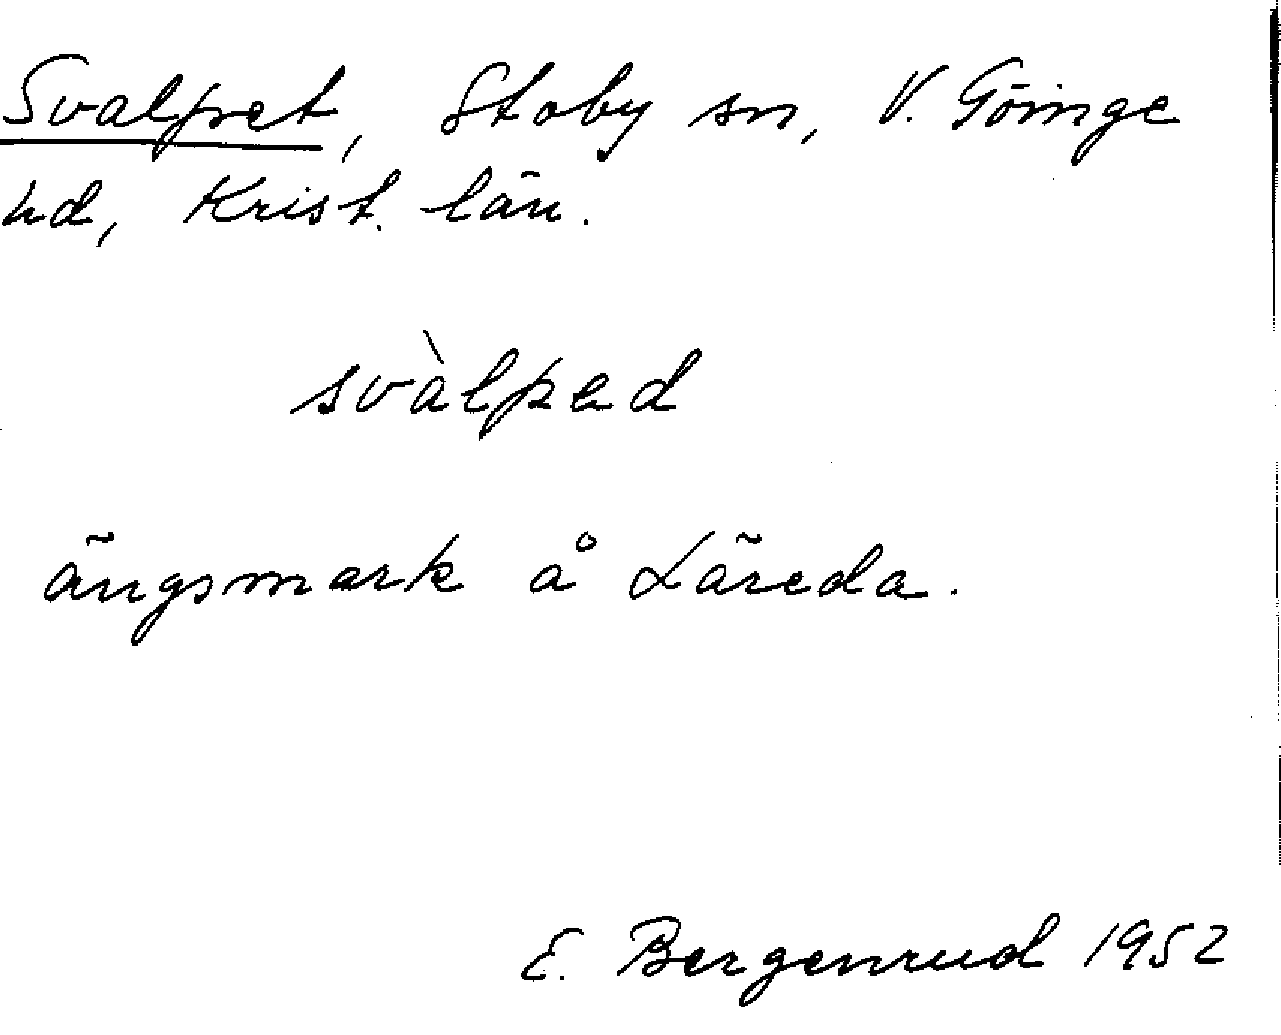 Svalpet, Stoby sn, V. Göinge
hd, Krist. län.
svàlped
ängsmark å Läreda.
E. Bergenrud 1952